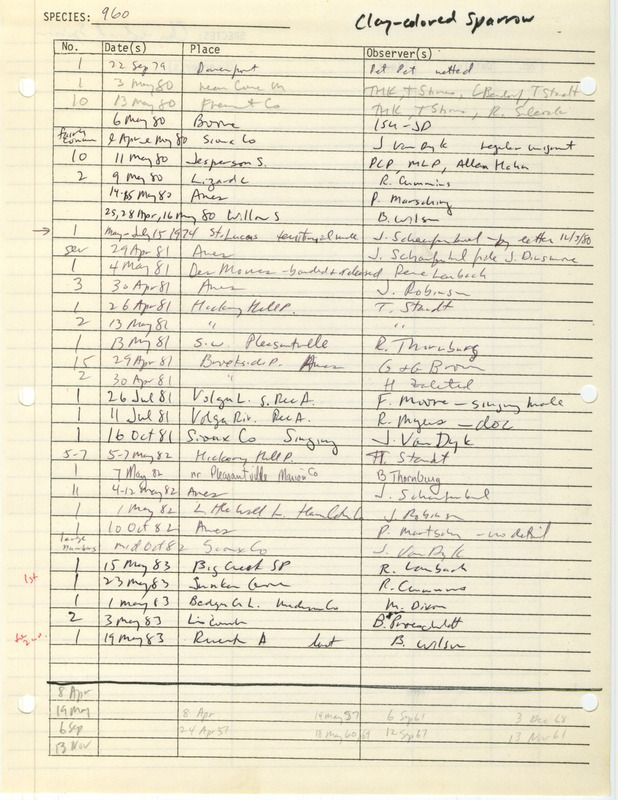 SPECIES: 960 Clay-colored Sparrow
No. Date(s) Place Observer(s)
1 22 Sep 79 Davenport Pet Pet netted
1 3 May 80 THK, T Shires, T Staudt
10 13 May 80 Fremont Co THK, T Shires, R. Slerck
6 May 80 Boone ISU-JD
fairly common May 80 Sioux Co J Van Dyk regular migrant
10 11 May 80 Jesperson S. PCP, MLP, Allen Hahn
2 9 May 80 Lizard L R. Cummins
14-15 May 80 Ames P. Martsching
25, 28 Apr, 16 May 80 Willow S B. Wilson
→ 1 May-July 15 1974 St. Lucas territorial male J. Schaufenbuel - by letter 12/3/80
sev 29 Apr 81 Ames J. Schaufenbuel fide J. Dinsmore
1 4 May 81 Des Moines - banded & released Rene Laubach
3 30 Apr 81 Ames J. Robinson
1 26 Apr 81 Hickory Hill P. T. Staudt
2 13 May 81 " "
1 13 May 81 S.W. Pleasantville R. Thornburg
15 29 Apr 81 Brookside P. Ames G & G Brown
2 30 Apr 81 " H Zaletel
1 26 Jul 81 Volga L. S. Rec A. F. Moore - singing male
1 11 Jul 81 Volga Riv. Rec A. R. Myers - doc
1 16 Oct 81 Sioux Co Singing J. Van Dyk
5-7 5-7 May 82 Hickory Hill P. T. Staudt
1 7 May 82 nr Pleasantville Marion Co B Thornburg
11 4-12 May 82 Ames J. Schaufenbuel
1 1 May 82 Little Wall L. Hamilton Co J Robinson
1 10 Oct 82 Ames P. Martsching - no detail
large numbers mid Oct 82 Sioux Co J. Van Dyk
1 15 May 83 Big Creek SP R. Laubach
1st 1 23 May 83 Sunken Grove R. Cummins
1 1 May 83 Badger Cr L. Madison Co M. Dixon
2 3 May 83 Liscomb B. Proescholdt
1 19 May 83 last B. Wilson
8 Apr
19 May 8 Apr 19 May 57 6 Sep 61 3 Dec 68
6 Sep 24 Apr 57 18 May 60, 69 12 Sep 67 13 Nov 61
13 Nov